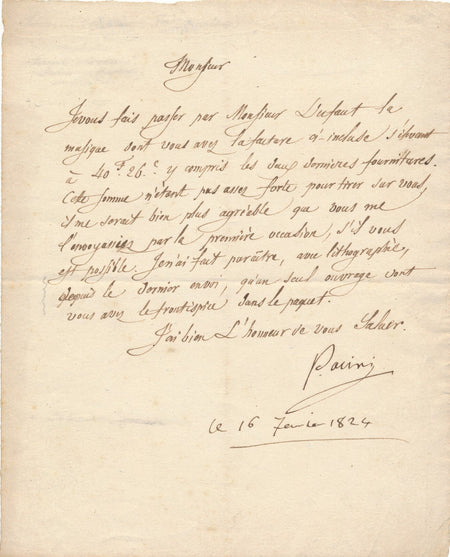 Monsieur
Je vous fais passer par Monsieur Dufaut la
musique dont vous avez la facture ci-incluse s'élevant
à 40.f 26.c y compris les deux dernières fournitures.
Cette somme n'étant pas assez forte pour tirer sur vous,
il me serait bien plus agréable que vous me
l'envoyassiez par la première occasion, s'il vous
est possible. Je n'ai fait paraître, avec lithographie,
depuis le dernier envoi, qu'un seul ouvrage dont
vous avez le frontispice dans le paquet.
J'ai bien L'honneur de vous Saluer.
Pacini
le 16 février 1824